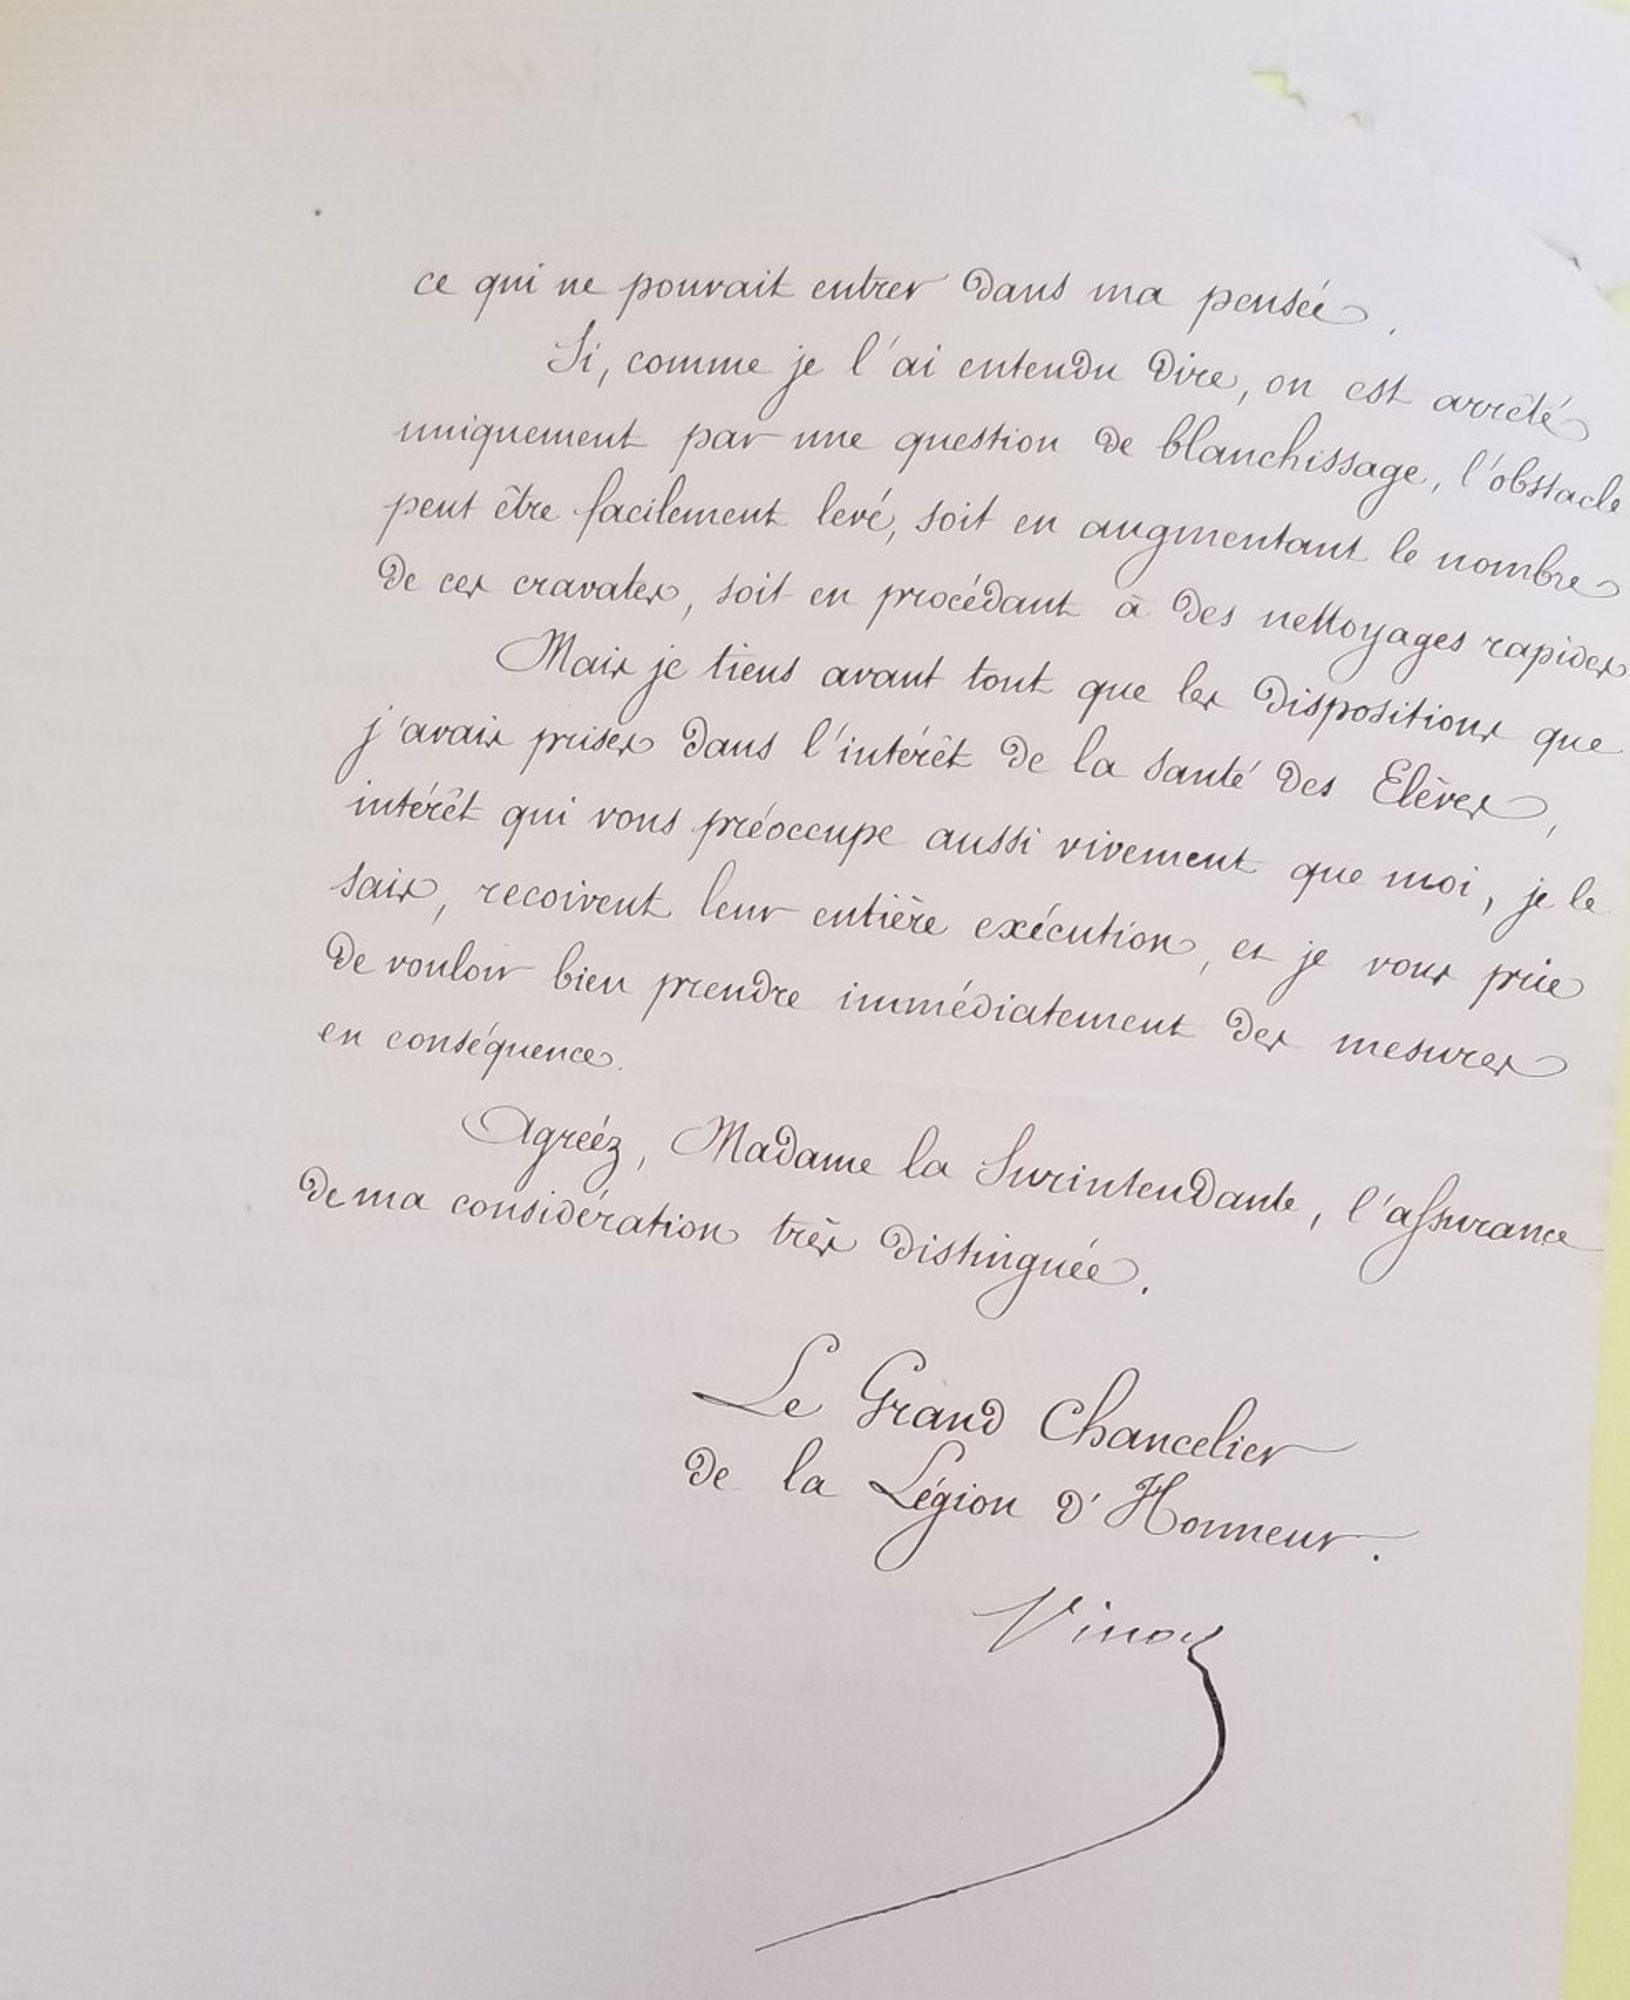 ce qui ne pouvait entrer dans ma pensée.
Si, comme je l'ai entendu dire, on est arrêté
uniquement par une question de blanchissage, l'obstacle
peut être facilement levé, soit en augmentant le nombre
de ces cravates, soit en procédant à des nettoyages rapides
Mais je tiens avant tout que les dispositions que
j'avais prises dans l'intérêt de la santé des Elèves,
intérêt qui vous préoccupe aussi vivement que moi, je le
sais, recoivent leur entière exécution, et je vous prie
de vouloir bien prendre immédiatement des mesures
en conséquence.
Agréez, Madame la Surintendante, l'assurance
de ma considération très distinguée.
Le Grand Chancelier
de la Légion d'Honneur.
Vinoy